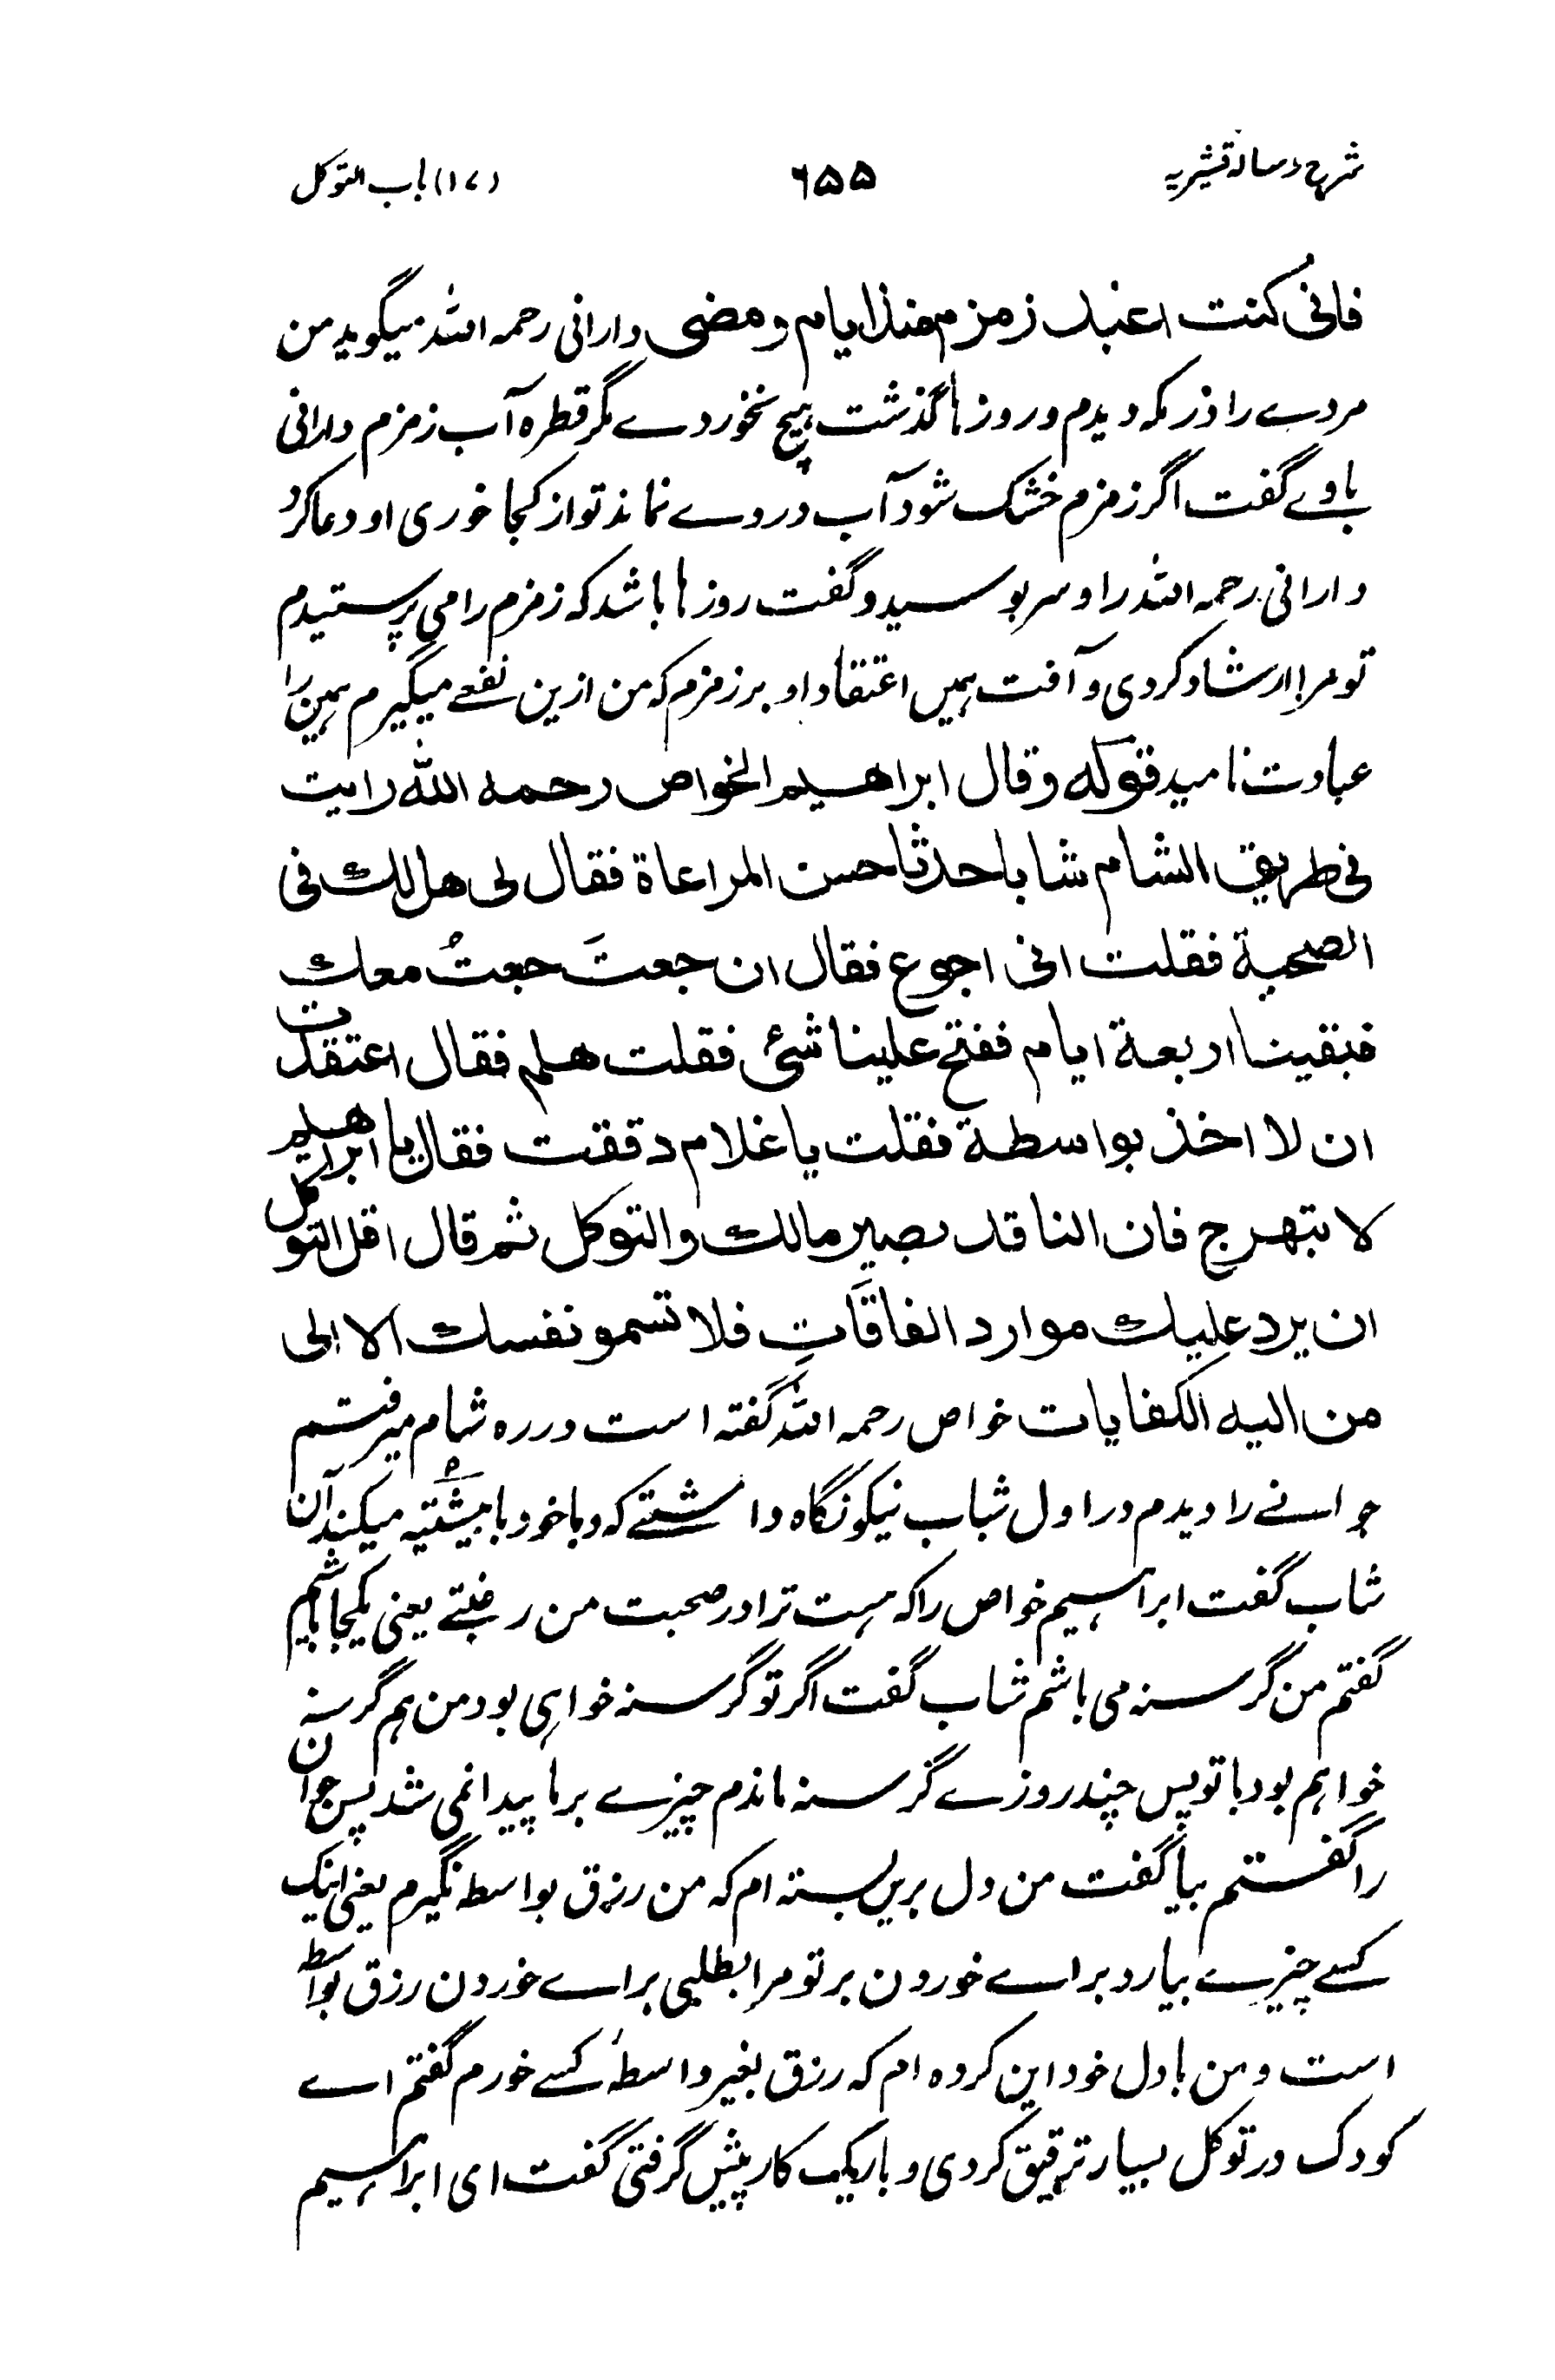 شرح رسالہ قشیریہ ۶۵۵ (۱۷) باب التوکل
فانی کنت اعبد زمزم منذ ایام ومضی دارانی رحمہ اللہ میگوید من
مردے را در مکہ دیدم و روزہا گذشت ہیچ نخوردے مگر قطرہ آب زمزم دارانی
باوے گفت اگر زمزم خشک شود آب دروے نماند تو از کجا خوری او دعا کرد
دارانی رحمہ اللہ را و سر بوسید و گفت روزہا باشد کہ زمزم را می پرستیدم
تو مرا ارشاد کردی و آفت ہمیں اعتقاد او بر زمزم کہ من ازین نفعے میگیرم ہمین را
عبادت نامید قولہ وقال ابراھیم الخواص رحمہ اللہ رایت
فی طریق الشام شابا حدثا حسن المراعاة فقال لی ھل لك فی
الصحبة فقلت انی اجوع فقال ان جعتَ جعتُ معك
فبقینا اربعة ایام ففتح علینا شئ فقلت ھلم فقال اعتقدت
ان لا اخذ بواسطة فقلت یا غلام دققت فقال یا ابراھیم
لا تبهرج فان الناقد بصیر مالك والتوکل ثم قال اقل التوکل
ان یرد علیك موارد الفاقَاتِ فلا تسمو نفسك الا الی
من الیه الکفایات خواص رحمہ اللہ گفتہ است در رہ شام میرفتم
جوانے را دیدم در اول شباب نیکو نگاہ داشتے کہ وبا خود با میکند آن
شاب گفت ابراہیم خواص را کہ ہست ترا در صحبت من رغبتے یعنی یکجا باشیم
گفتم من گرسنہ می باشم شاب گفت اگر تو گرسنہ خواہی بود من ہم گرسنہ
خواہم بود با تو پس چند روزے گرسنہ ماندم چیزے بر ما پیدا نمی شد پس جوان
را گفتم بیا گفت من دل برین بستہ ام کہ من رزق بواسطہ نگیرم یعنی اینک
کسے چیزے بیارد براے خوردن بر تو مرا بطلبی براے خوردن رزق بواسطہ
است و من با دل خود این کردہ ام کہ رزق بغیر واسطۂ کسے خورم گفتم اے
کودک در توکل بسیار ترقیق کردی و باریک کار پیش گرفتی گفت ای ابراہیم